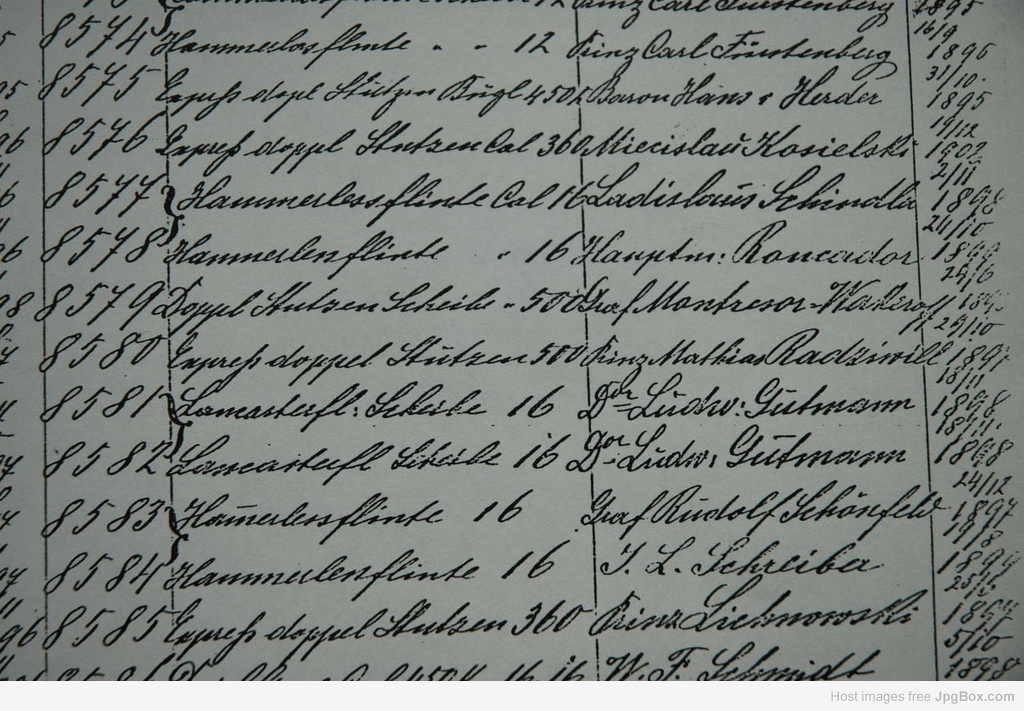 Prinz Carl Fürstenberg 1895
16/9
8574 Hammerlosflinte " " 12 Prinz Carl Fürstenberg 1896
31/10.
8575 Express dopl Stützen Bügl 450 Baron Hans v Herder 1895
19/12
8576 Express doppl Stutzen Cal 360 Miecislaŭ Kosielski 1902
2/11
8577 Hammerlessflinte Cal 16 Ladislaŭs Schindla 1898
24/10
8578 Hammerlessflinte " 16 Hauptm: Roncador 1899
24/6
8579 Doppl Stutzen Scheibe " 500 Graf Montresor-
25/10
8580 Express doppel Stützen 500 Prinz Mathias Radziwill 1897
18/11
8581 Lancasterfl: Scheibe 16 Dor Lŭdw: Gŭtmann 1898
18/11.
8582 Lancasterfl Scheibe 16 Dor Lŭdw: Gŭtmann 1898
24/12
8583 Ham̄erlessflinte 16 Graf Rŭdolf Schönfeld 1897
8584 Hammerlessflinte 16 J. L. Schreiber 1899
25/6
96 8585 Express doppel Stutzen 360 Prinz Lichnowski 1897
5/10
W. F. Schmidt 1898
Host images free JpgBox.com